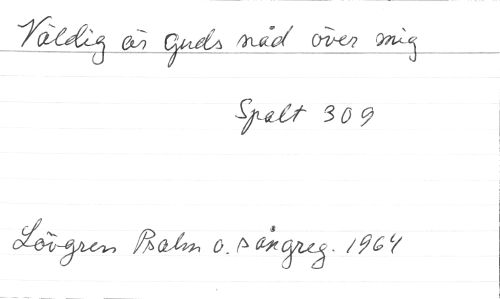 Väldig är guds nåd över mig
Spalt 309
Lövgren Psalm o. sångreg. 1964